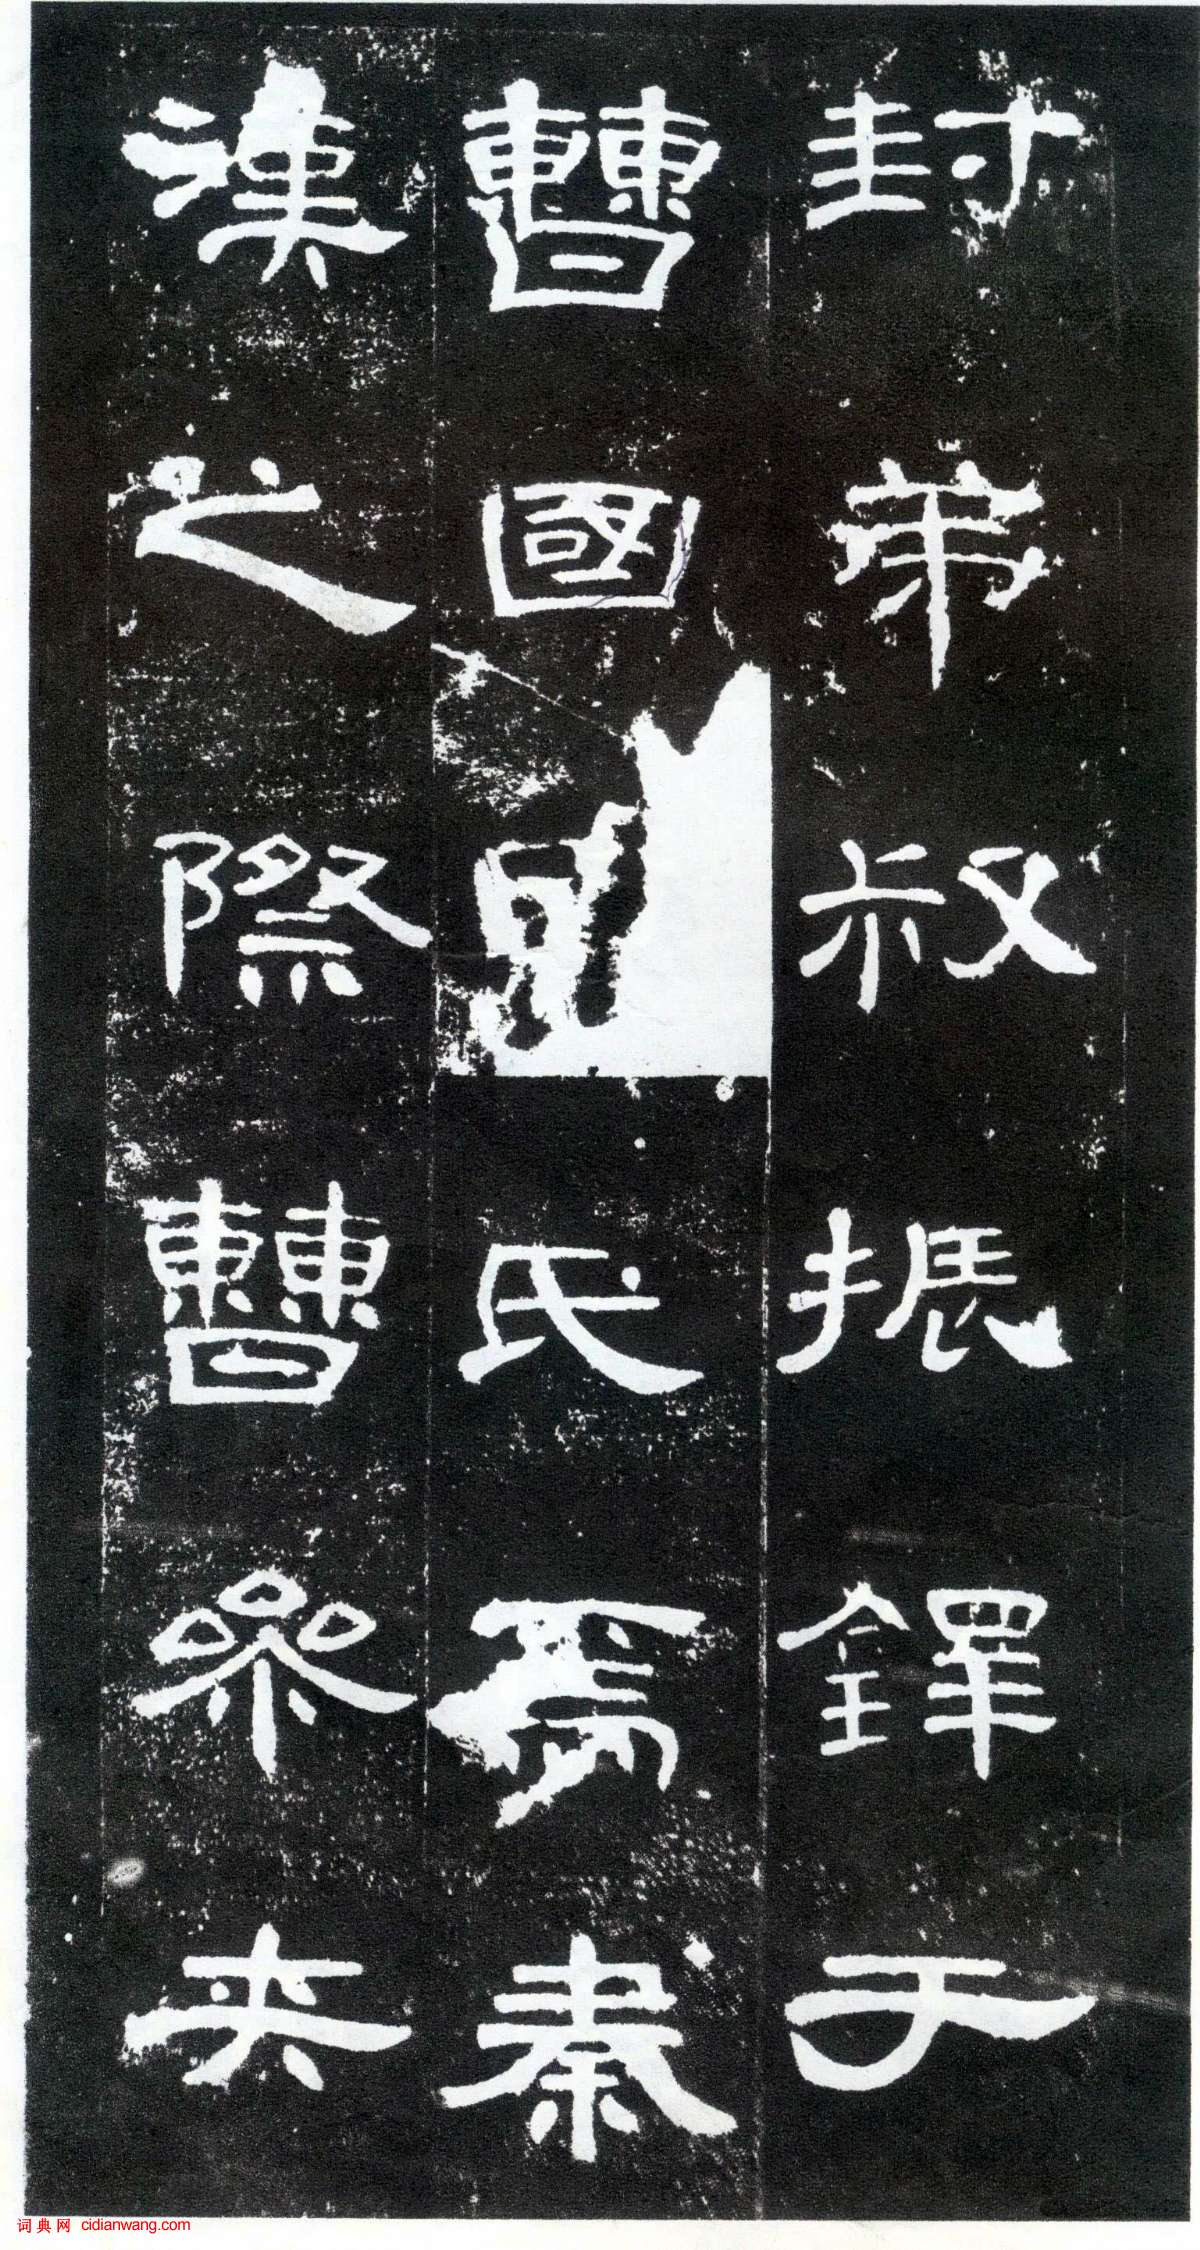 封弟叔振鐸于
曹國氏焉秦
漢之際曹參夾
词典网 cidianwang.com